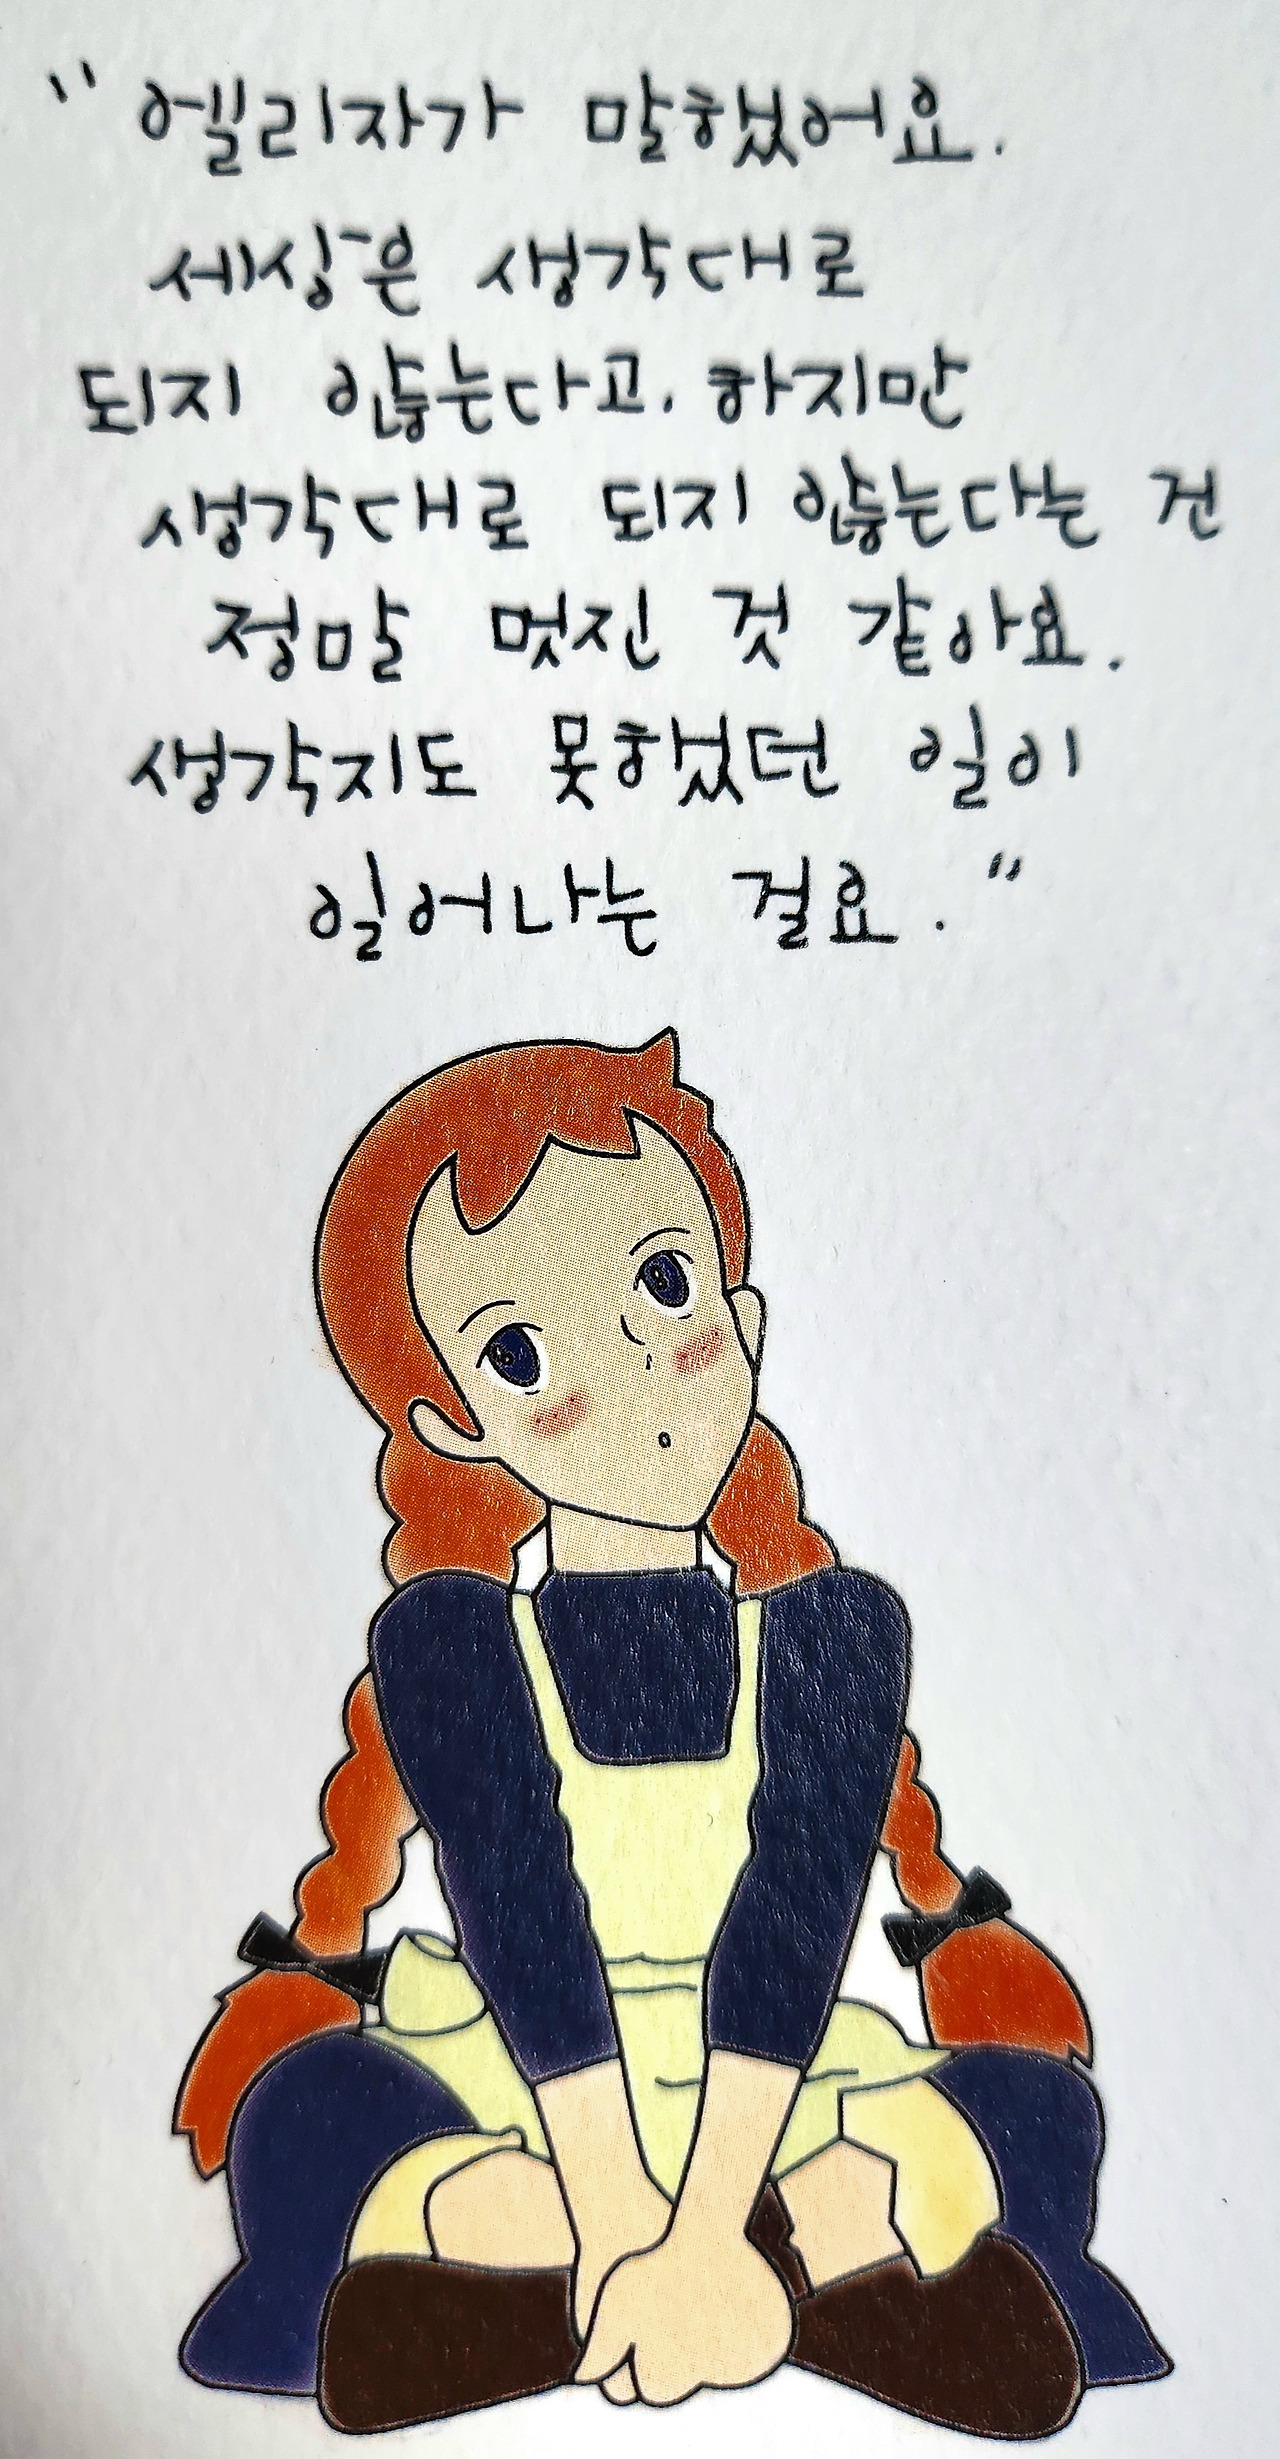 "엘리자가 말했어요.
세상은 생각대로
되지 않는다고. 하지만
생각대로 되지 않는다는 건
정말 멋진 것 같아요.
생각지도 못했던 일이
일어나는 걸요."